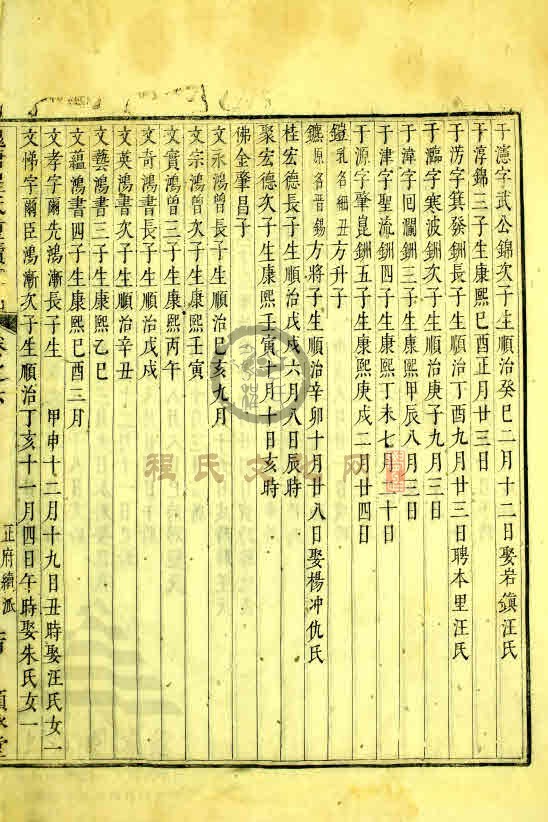 于漶字武公錦次子生順治癸巳二月十二日娶岩鎮汪氏
于淳錦三子生康熙己酉正月廿三日
于汸字箕發鈿長子生順治丁酉九月廿三日聘本里汪氏
于瀛字寒波鈿次子生順治庚子九月三日
于湋字囘瀾鈿三子生康熙甲辰八月三日
于津字聖流鈿四子生康熙丁未七月三十日
于源字肇崑鈿五子生康熙庚戌二月廿四日
鎧乳名細丑方升子
鑣原名晋錫方將子生順治辛卯十月廿八日娶楊冲仇氏
桂宏德長子生順治戊戌六月八日辰時
聚宏德次子生康熙壬寅十月十日亥時
佛全肇昌子
文永鴻曾長子生順治己亥九月
文宗鴻曾次子生康熙壬寅
文賓鴻曾三子生康熙丙午
文奇鴻書長子生順治戊戌
文英鴻書次子生順治辛丑
文藝鴻書三子生康熙乙巳
文蘊鴻書四子生康熙己酉三月
文孝字爾先鴻漸長子生 甲申十二月十九日丑時娶汪氏女一
文悌字爾臣鴻漸次子生順治丁亥十一月四日午時娶朱氏女一
卷之六
正府續派
程氏文化网